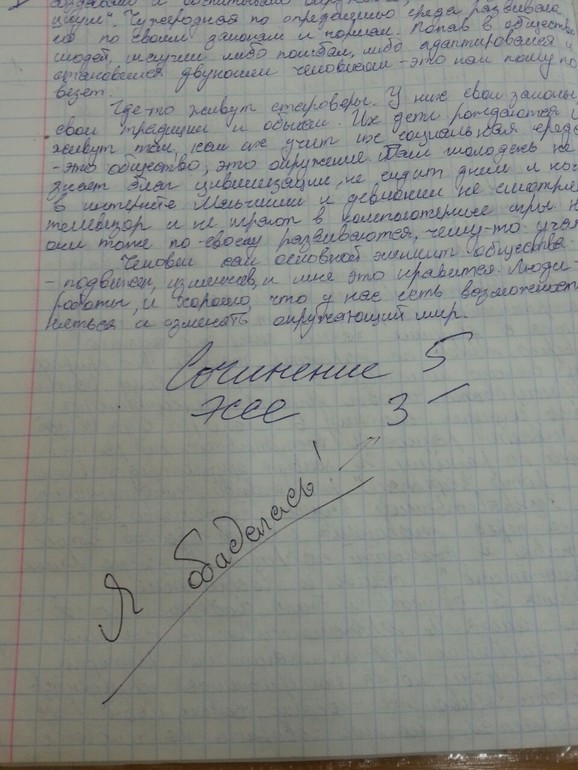 щум". Чужеродная по определению среда развивала
ся по своим законам и нормам. Попав в общество
людей, маугли либо погибал, либо адаптировался и
становился двуногим человеком - это кому
везет.
Где-то живут староверы. У них свои законы
свои традиции и обычаи. Их дети рождаются и
живут там, как их учит их социальная среда
- это общество, это окружение. Там молодежь не
знает благ цивилизации, не сидит днем и ноч
в интернете. Мальчики и девчонки не смотря
телевизор и не играют в компьютерные игры. Н
они тоже по-своему развиваются, чему-то учат
Человек как основной элемент общества
- подвижен, изменчив, и мне это нравится. Люди -
роботы, и хорошо, что у нас есть возможност
няться и изменять окружающий мир.
Сочинение 5
эссе 3 -
Я обаделась!